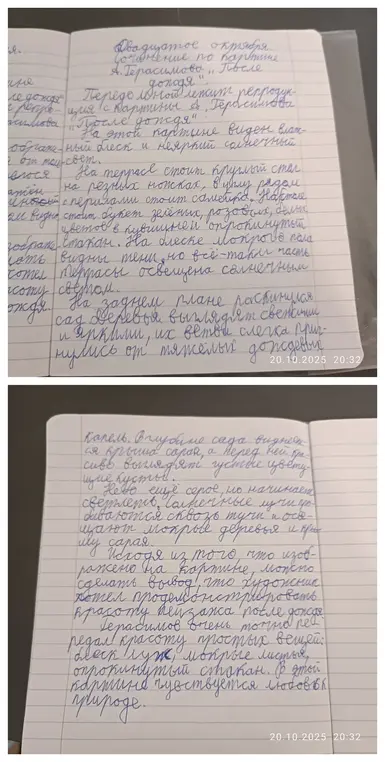 Двадцатое октября
Сочинение по картине
А. Герасимова „После
дождя".
Передо мной лежит репродук-
ция с картины А. Герасимова
"После дождя".
На этой картине виден влаж-
ный блеск и неяркий солнечный
свет.
На террасе стоит круглый стол
на резных ножках. В углу рядом
с перилами стоит скамейка. На столе
стоит букет зелёных, розовых, белых
цветов в кувшине и опрокинутый
стакан. На блеске мокрого пола
видны тени, но всё-таки часть
террасы освещена солнечным
светом.
На заднем плане раскинулся
сад. Деревья выглядят свежими
и яркими, их ветви слегка приг-
нулись от тяжёлых дождевых
20.10.2025 20:32
капель. В глубине сада виднеет-
ся крыша сарая, а перед ней кра-
сиво выглядят густые цвету-
щие кусты.
Небо ещё серое, но начинает
светлеть, солнечные лучи про-
биваются сквозь тучи и осве-
щают мокрые деревья и кры-
шу сарая.
Исходя из того, что изоб-
ражено на картине, можно
сделать вывод, что художник
хотел продемонстрировать
красоту пейзажа после дождя.
Герасимов очень точно пе-
редал красоту простых вещей:
блеск луж, мокрые листья,
опрокинутый стакан. В этой
картине чувствуется любовь к
природе.
20.10.2025 20:32